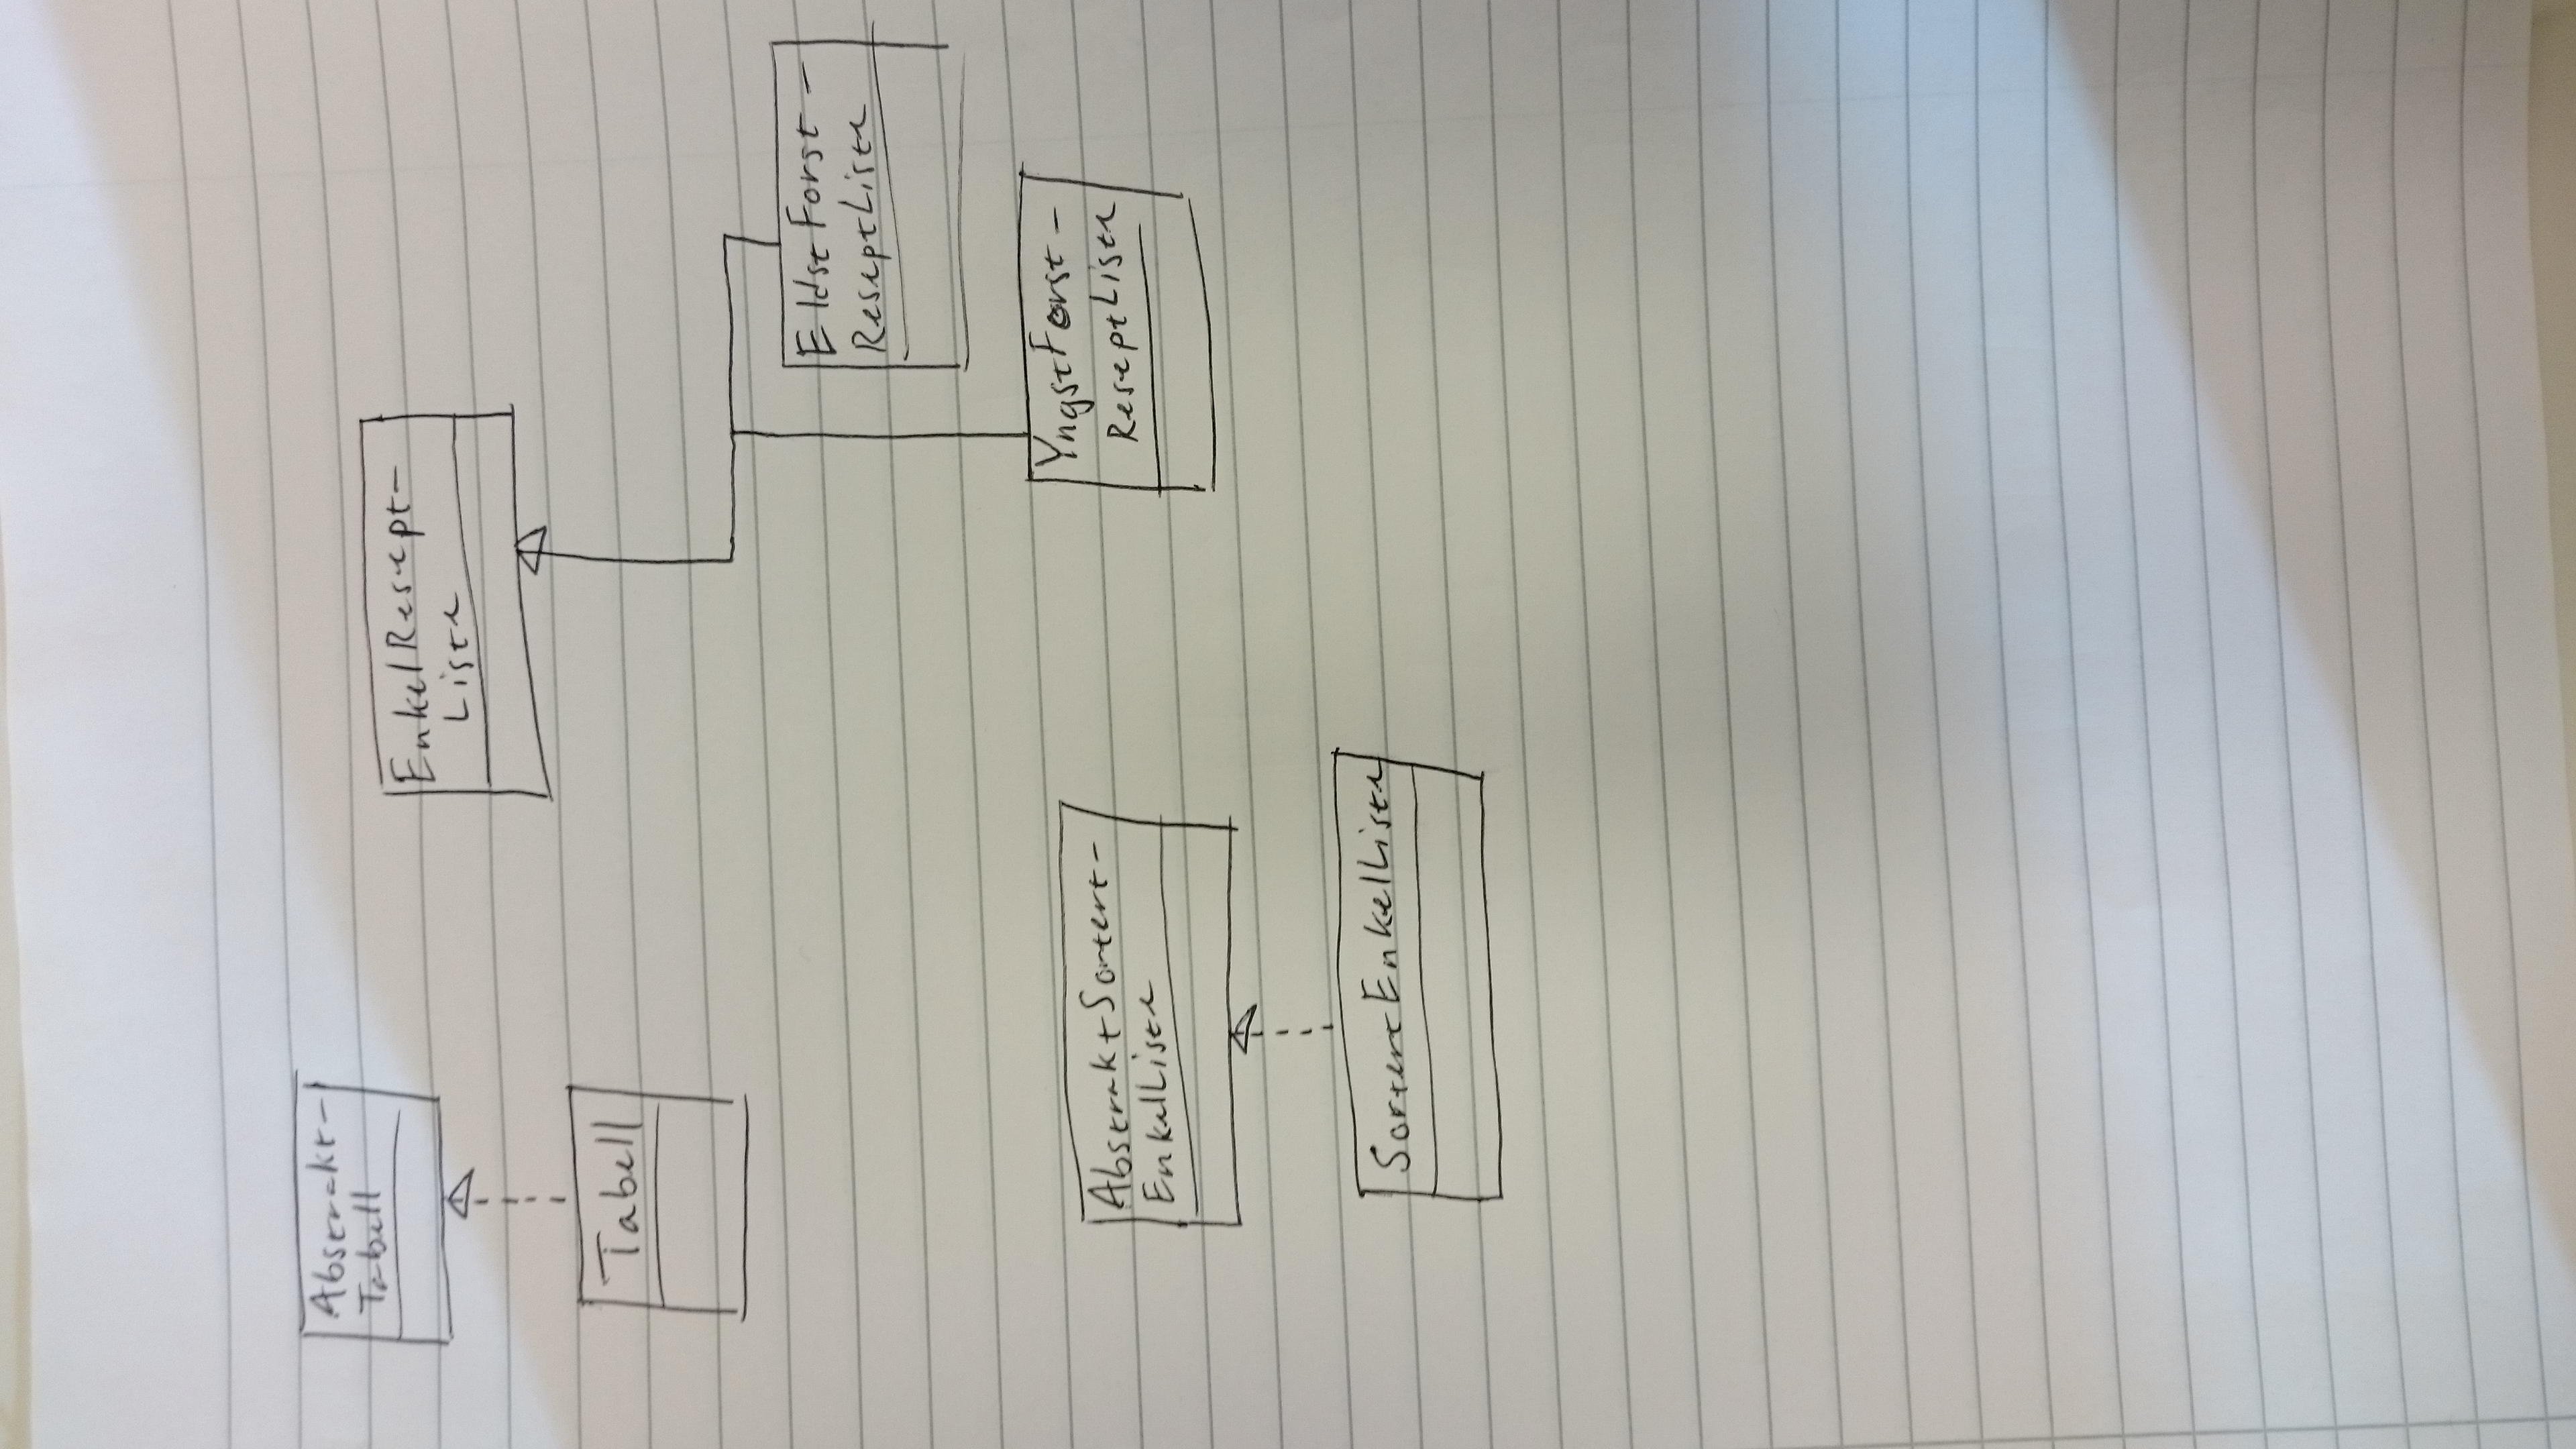 Abstrakt-
Tabell
Tabell
EnkelResept-
Liste
EldstForst-
ReseptListe
YngstForst-
ReseptListe
AbstraktSortert-
EnkelListe
SortertEnkelListe